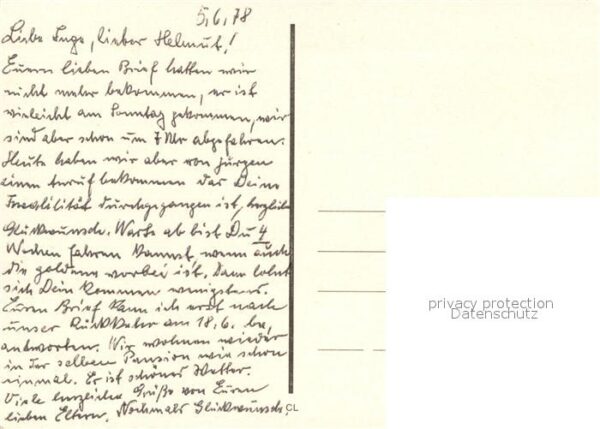 5.6.78
Liebe Inge, lieber Helmut!
Euern lieben Brief hatten wir
nicht mehr bekommen, er ist
vieleicht am Sonntag gekommen, wir
sind aber schon um 7 Uhr abgefahren.
Heute haben wir aber von Jürgen
einen Anruf bekommen das Deine
durchgegangen ist, herzliche
Glückwünsche. Warte ab bist Du 4
Wochen fahren kannst, wenn auch
die goldene vorbei ist. Dann lohnt
sich Dein Kommen wenigstens.
Euren Brief kann ich erst nach
unser Rückkehr am 18.6. be,
antworten. Wir wohnen wieder
in der selben Pension wie schon
einmal. Es ist schönes Wetter.
Viele herzliche Grüße von Euren
lieben Eltern. Nochmals Glückwünsche.
CL
privacy protection
Datenschutz